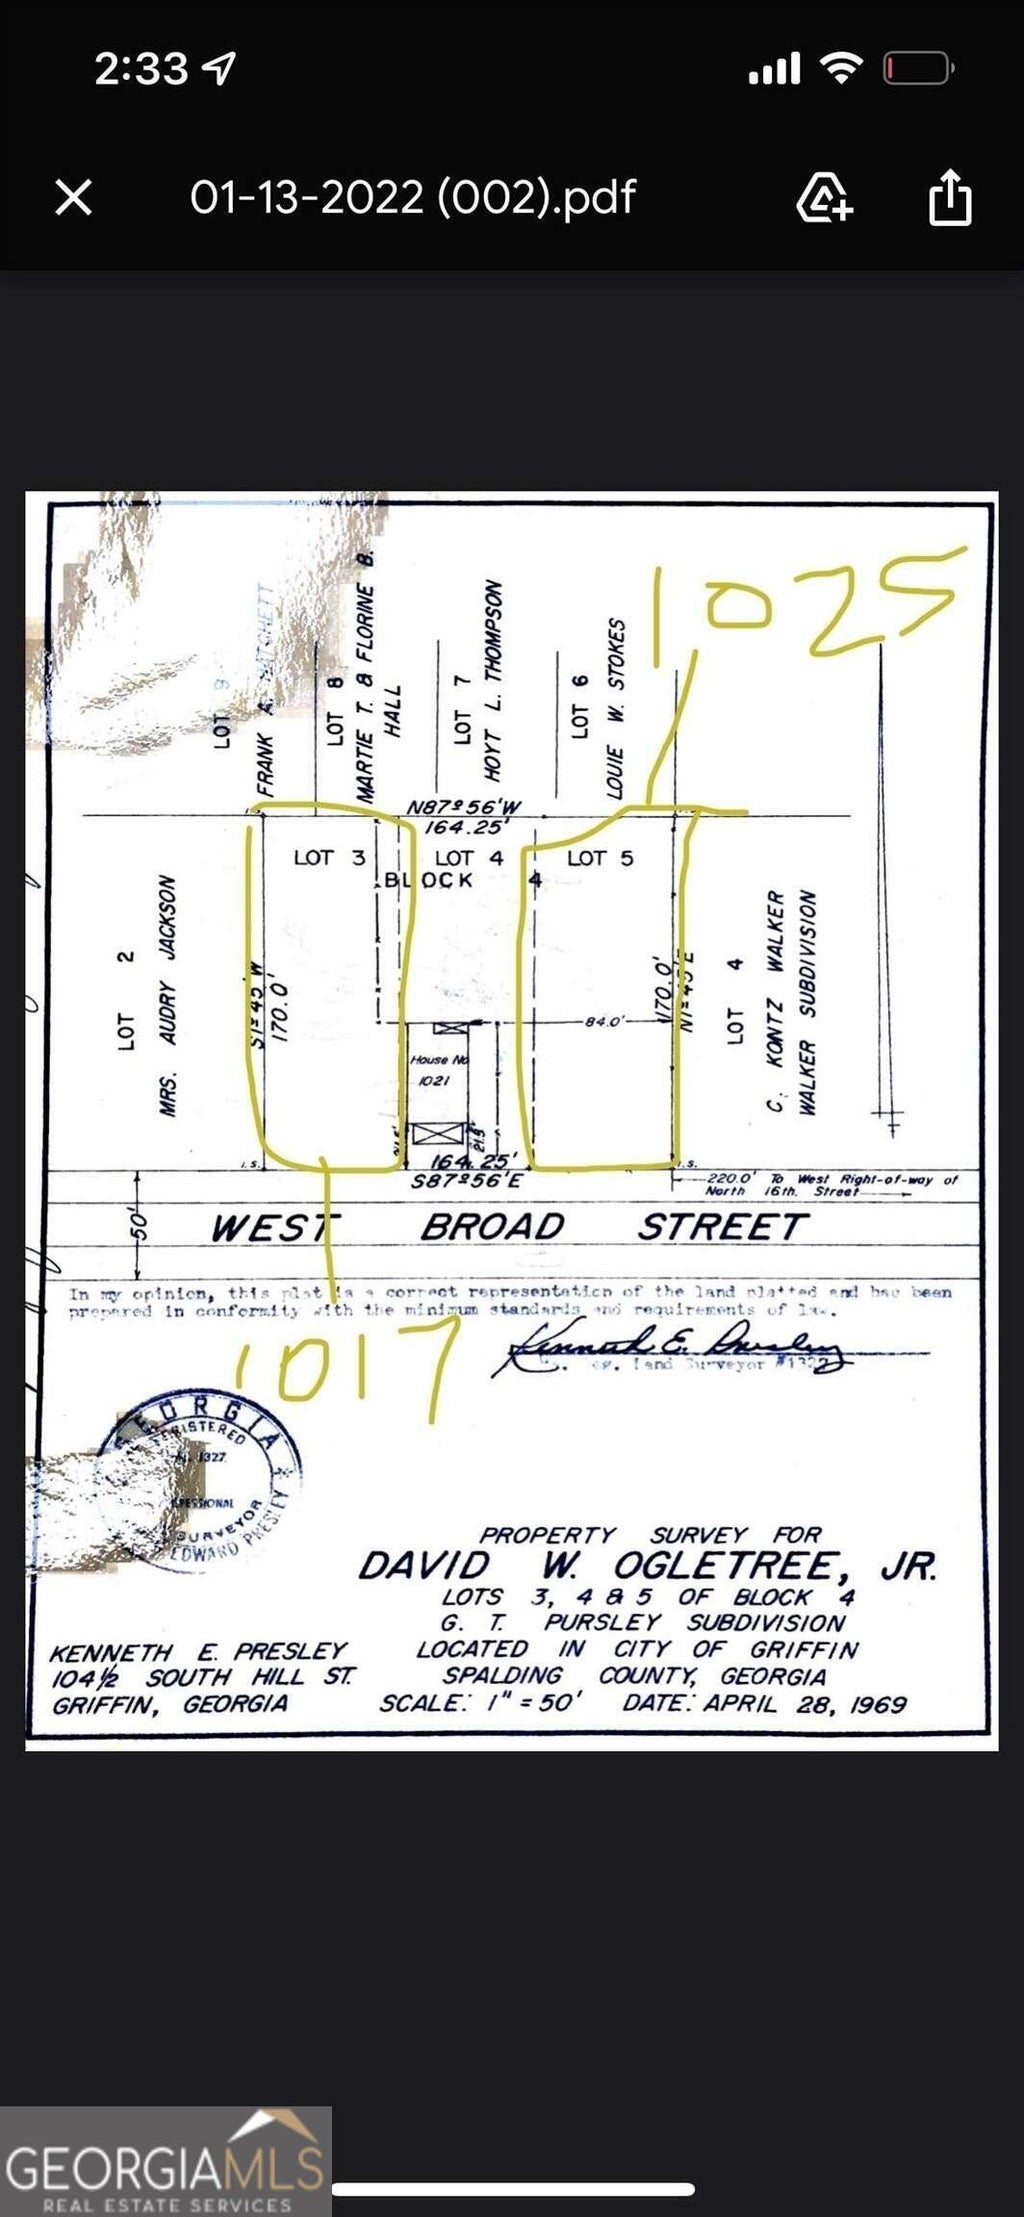 2:33
01-13-2022 (002).pdf
1025
LOT 9
FRANK A.
LOT 8
MARTIE T. & FLORINE B.
HALL
LOT 7
HOYT L. THOMPSON
LOT 6
LOUIE W. STOKES
N87°56'W
164.25'
LOT 3
LOT 4
LOT 5
BLOCK 4
LOT 2
MRS. AUDRY JACKSON
S1°45'W
170.0'
170.0'
N1°45'E
84.0'
House No
1021
21.5'
LOT 4
C. KONTZ WALKER
WALKER SUBDIVISION
I.S.
I.S.
164.25'
S87°56'E
220.0' To West Right-of-way of
North 16th. Street
50'
WEST BROAD STREET
In my opinion, this plat is a correct representation of the land platted and has been
prepared in conformity with the minimum standards and requirements of law.
Kenneth E. Presley
Reg. Land Surveyor #1327
1017
GEORGIA
REGISTERED
No. 1327
PROFESSIONAL
SURVEYOR
EDWARD PRESLEY
PROPERTY SURVEY FOR
DAVID W. OGLETREE, JR.
LOTS 3, 4 & 5 OF BLOCK 4
G. T. PURSLEY SUBDIVISION
LOCATED IN CITY OF GRIFFIN
SPALDING COUNTY, GEORGIA
SCALE: 1" = 50' DATE: APRIL 28, 1969
KENNETH E. PRESLEY
104½ SOUTH HILL ST.
GRIFFIN, GEORGIA
GEORGIAMLS
REAL ESTATE SERVICES